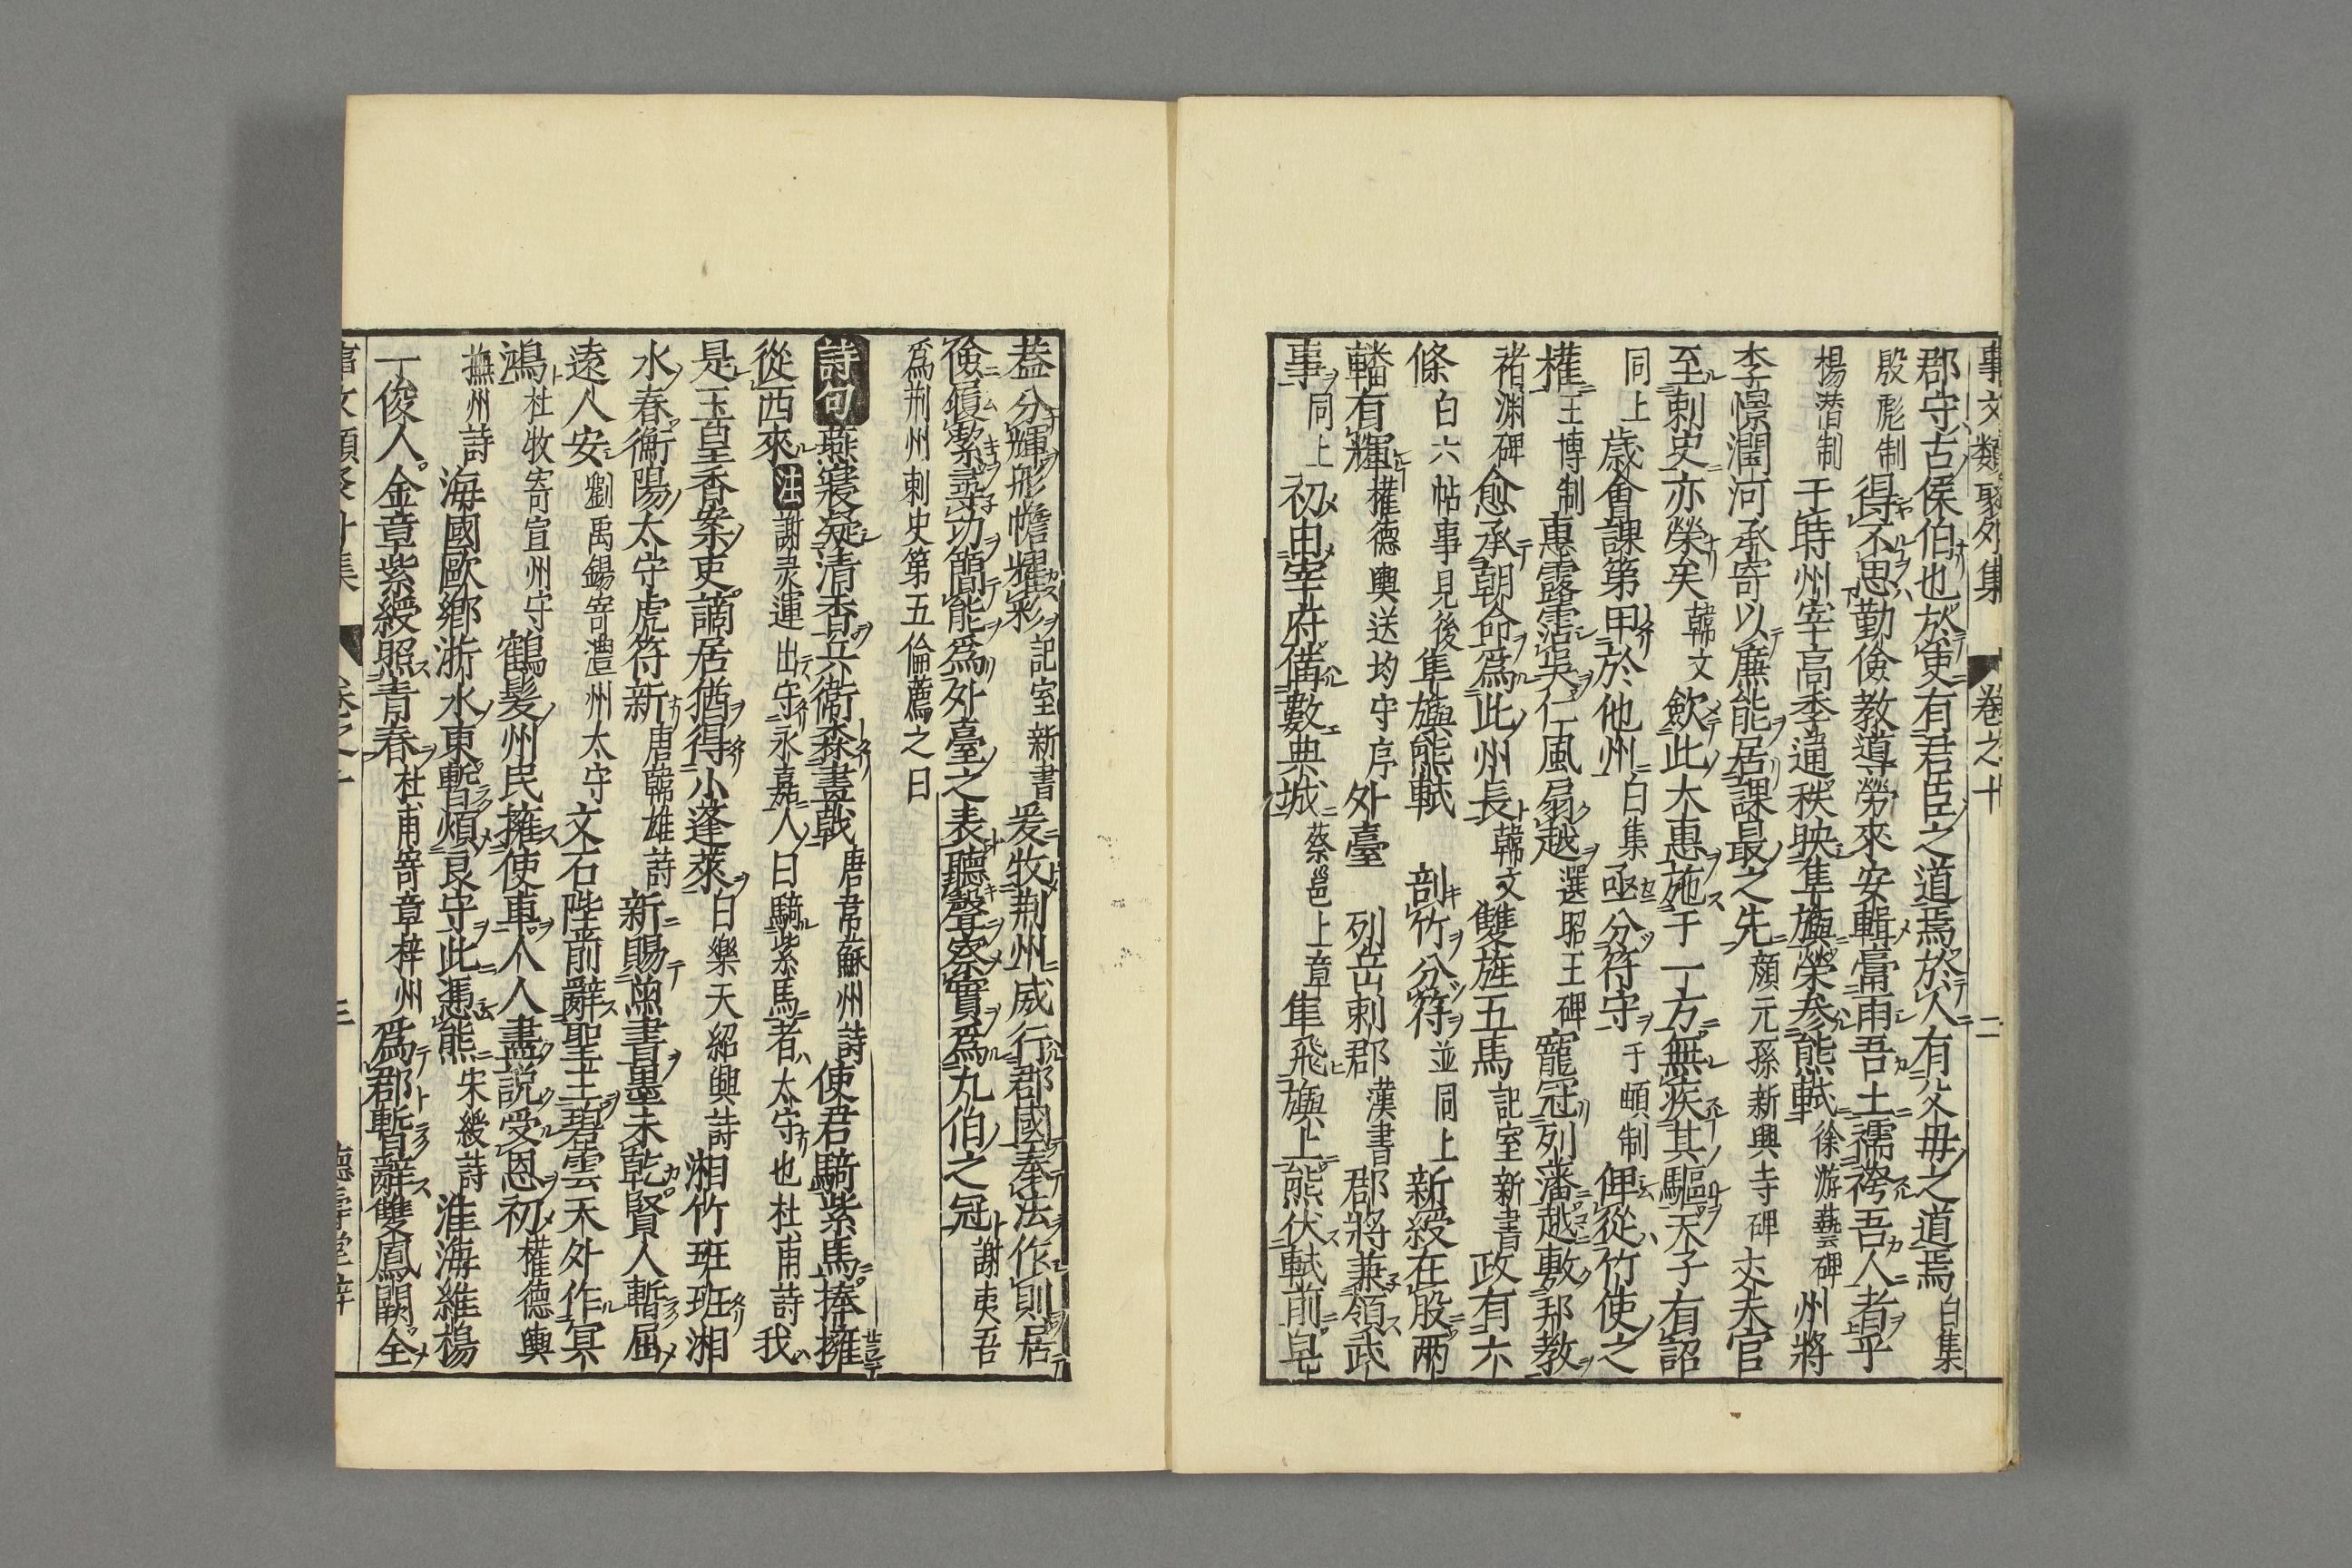 事文類聚外集 卷之十 二
郡守古侯伯也於吏有君臣之道焉於人有父母之道焉白集
殷彪制得不思勤儉教導勞來安輯膏雨吾土襦袴吾人者乎
楊潜制于時州宰高季通秩映隼旟榮參熊軾徐游藝碑州將
李憬潤河承寄以廉能居課最之先顔元孫新興寺碑夫夫官
至刺史亦榮矣韓文歛此大惠施于一方無疾其驅天子有詔
同上歳會課第甲於他州白集亟分符守于頔制俾從竹使之
權王博制惠露霑吳仁風扇越選昭王碑寵冠列藩越敷邦教
褚渊碑愈承朝命爲此州長韓文雙旌五馬記室新書政有六
條白六帖事見後隼旟熊軾 剖竹分符並同上新綬在股兩
轓有輝權德輿送均守序外臺 列岳刺郡漢書郡將兼領武
事同上初由宰府備數典城蔡邕上章隼飛旟上熊伏軾前皂
蓋分輝彤幨耀彩記室新書爰牧荆州威行郡國奉法作則居
儉履潔尋功簡能爲外臺之表聽聲察實爲九伯之冠謝夷吾
爲荆州刺史第五倫薦之曰
詩句燕寢凝清香兵衞森畫戟唐韋蘇州詩使君騎紫馬捧擁
從西來注謝灵運出守永嘉人曰騎紫馬者太守也杜甫詩我
是玉皇香案吏謫居猶得小蓬萊白樂天紹興詩湘竹班班湘
水春衡陽太守虎符新唐韓雄詩新賜魚書墨未乾賢人暫屈
遠人安劉禹錫寄澧州太守文石陛前辭聖主碧雲天外作冥
鴻杜牧寄宣州守鶴髪州民擁使車人人盡説受恩初權德輿
撫州詩海國歐鄉浙水東暫煩良守此憑熊宋綬詩淮海維楊
一俊人金章紫綬照青春杜甫寄章梓州爲郡暫辭雙鳳闕全